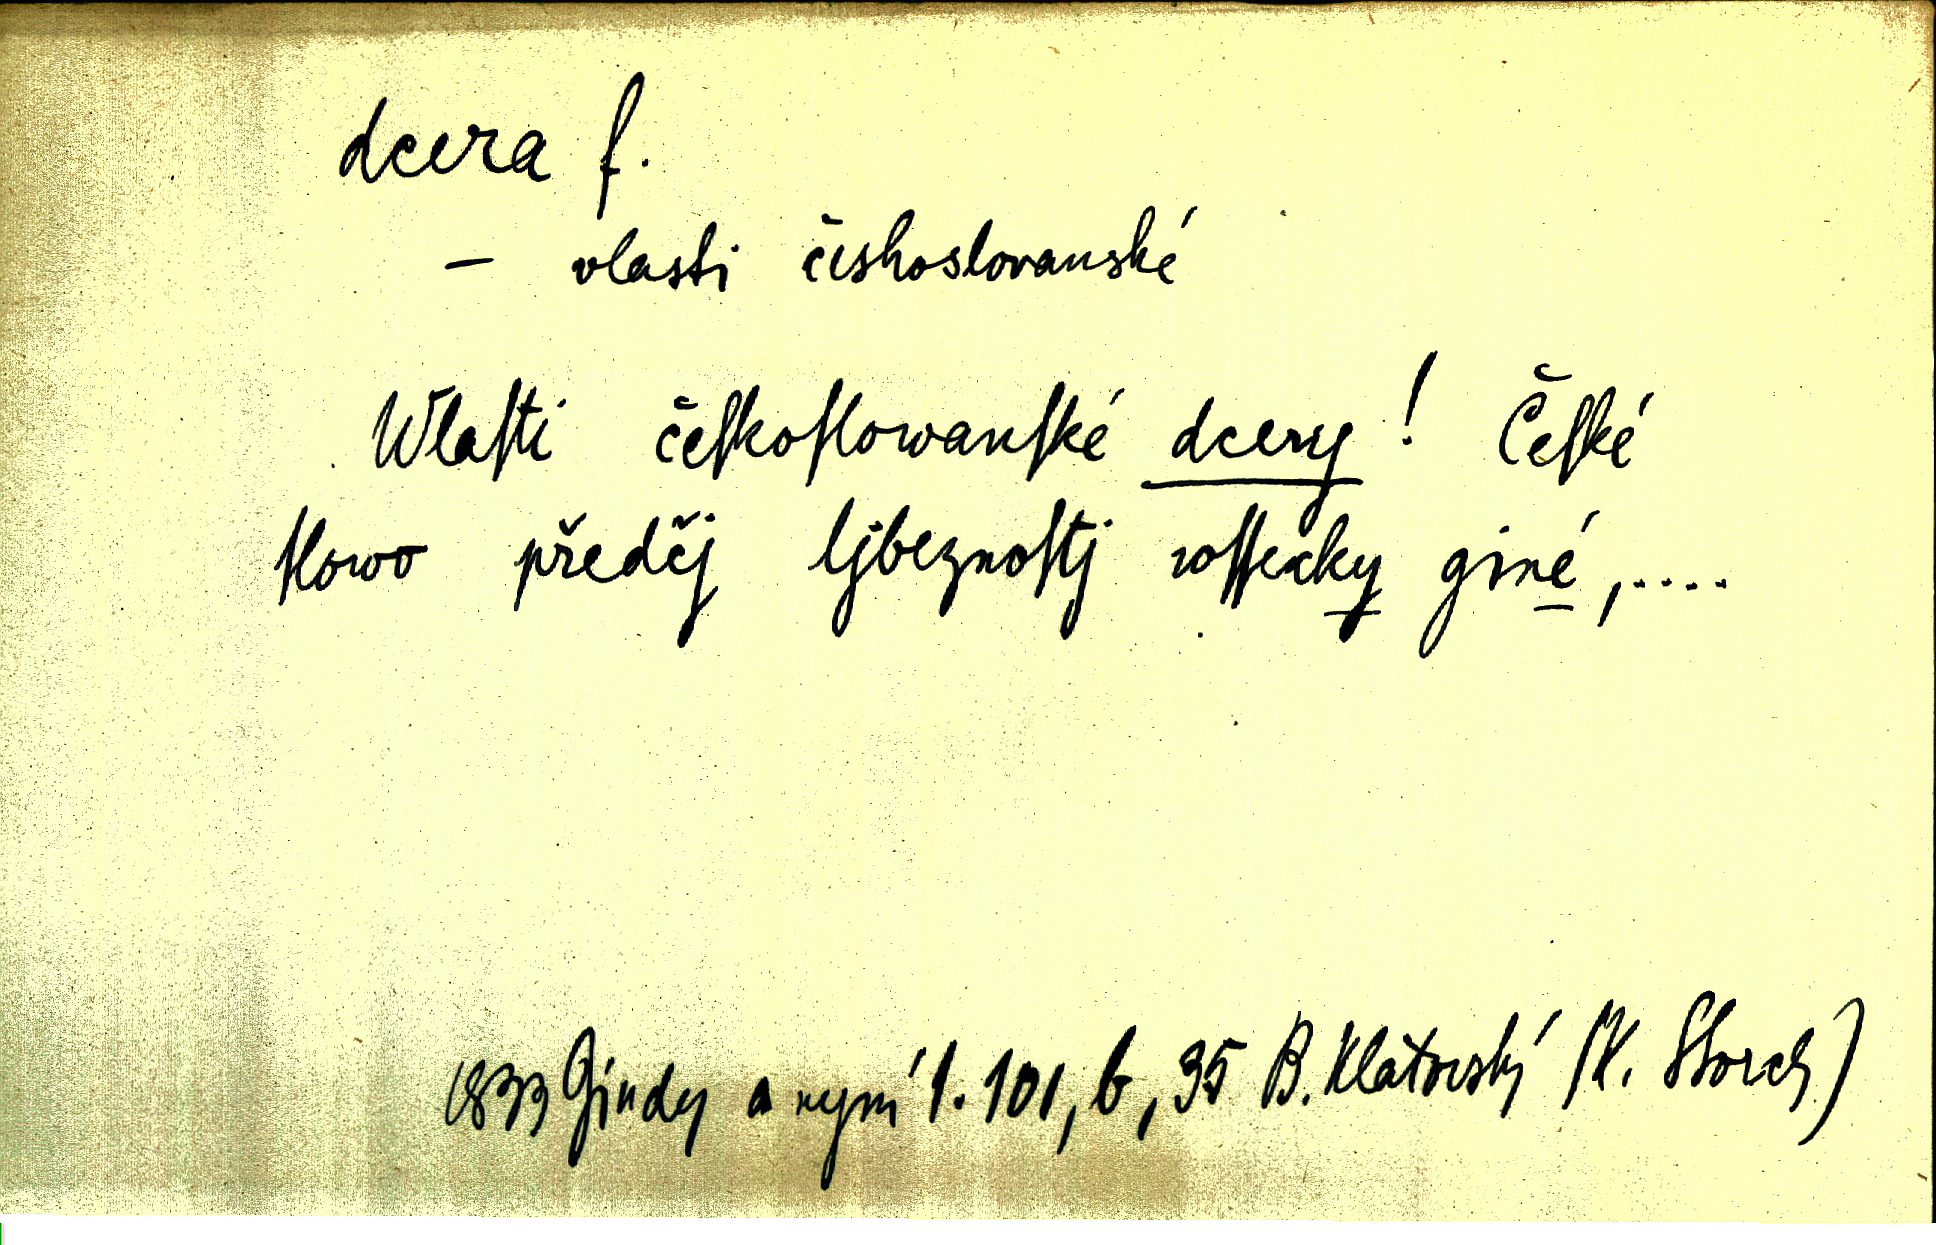 dcera f.
– vlasti českoslovanské
Wlaſti čeſkoſlowanſké dcery! Čeſké
ſlowo předčj ljbeznoſtj wſſecky giné,....
1833 Gindy a nyní 1. 101, b, 35 B. Klátovský (K. Storch)